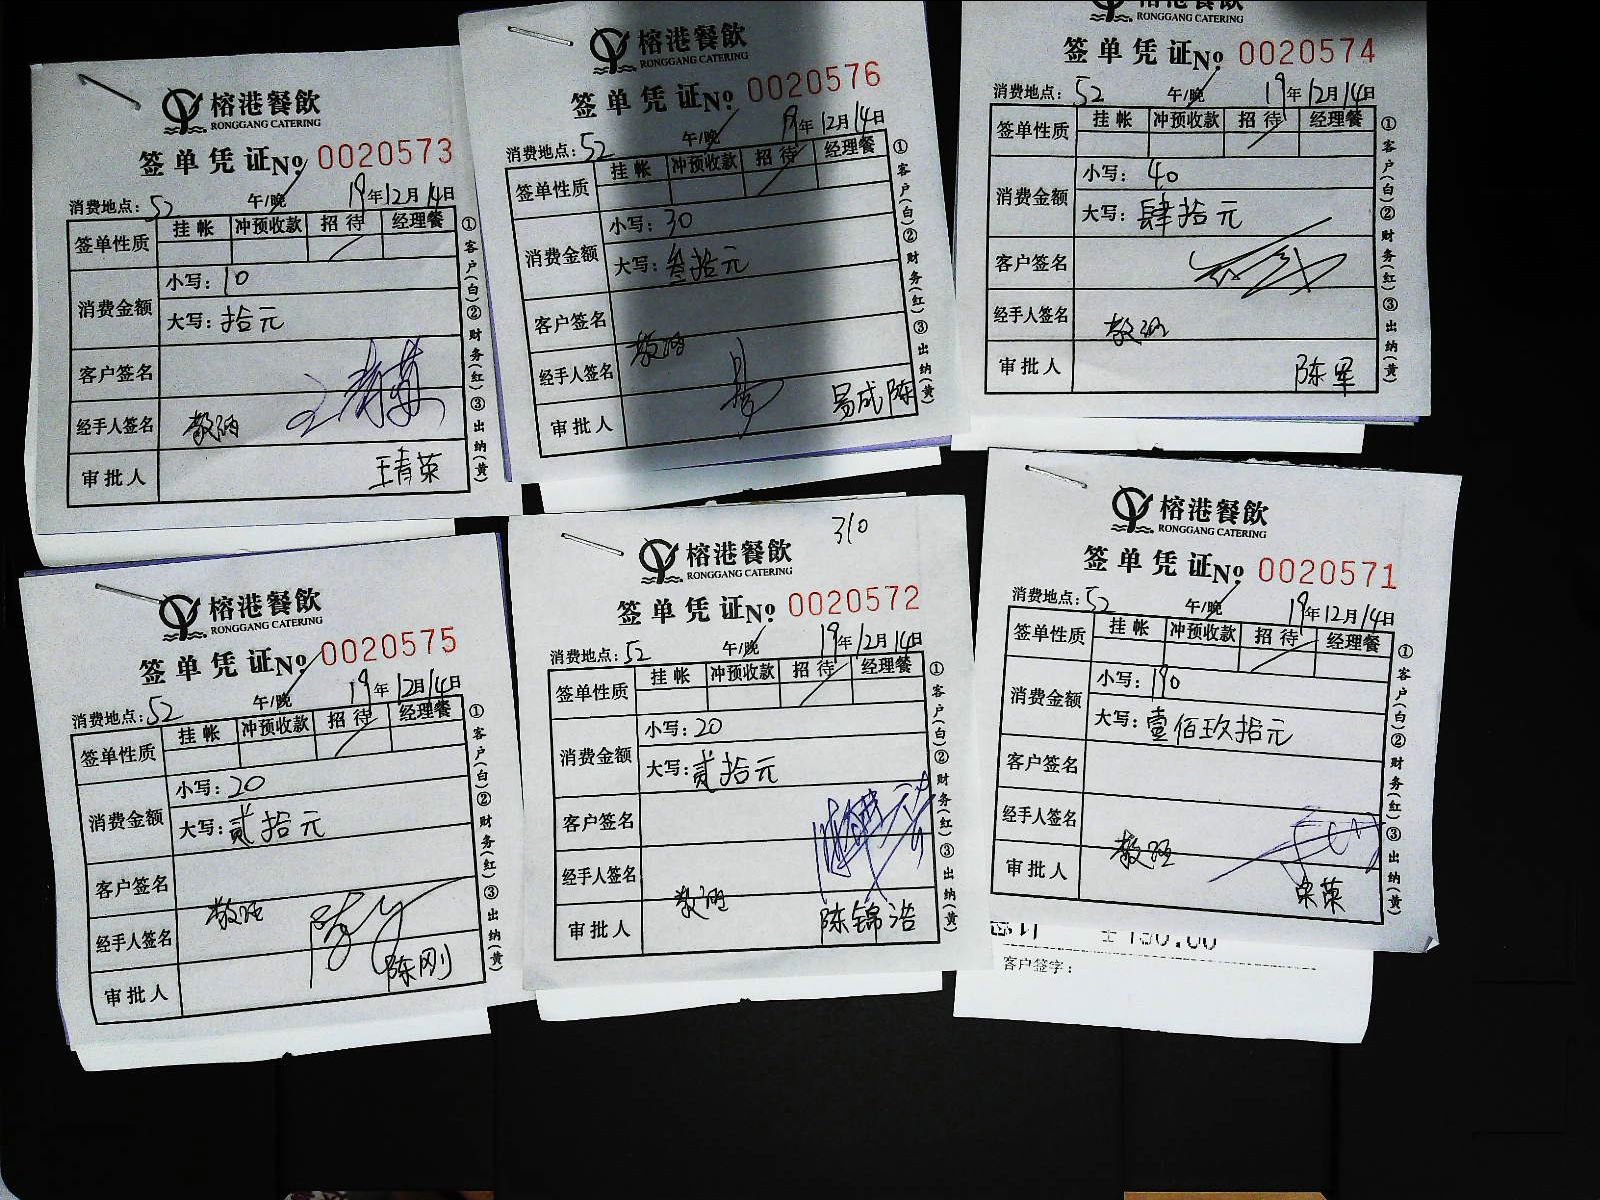 榕港餐飲
RONGGANG CATERING
签单凭证 No. 0020573
消费地点: 52 午/晚 19年12月14日
签单性质 挂帐 冲预收款 招待 经理餐
消费金额 小写: 10
大写: 拾元
客户签名
经手人签名
审批人 王青荣
①客户(白)②财务(红)③出纳(黄)
榕港餐飲
RONGGANG CATERING
签单凭证 No. 0020576
消费地点: 52 午/晚 19年12月14日
签单性质 挂帐 冲预收款 招待 经理餐
消费金额 小写: 30
大写: 叁拾元
客户签名
经手人签名
审批人 易成陈
①客户(白)②财务(红)③出纳(黄)
榕港餐飲
RONGGANG CATERING
签单凭证 No. 0020574
消费地点: 52 午/晚 19年12月14日
签单性质 挂帐 冲预收款 招待 经理餐
消费金额 小写: 40
大写: 肆拾元
客户签名
经手人签名
审批人 陈军
①客户(白)②财务(红)③出纳(黄)
榕港餐飲
RONGGANG CATERING
签单凭证 No. 0020575
消费地点: 52 午/晚 19年12月14日
签单性质 挂帐 冲预收款 招待 经理餐
消费金额 小写: 20
大写: 贰拾元
客户签名
经手人签名
审批人 陈刚
①客户(白)②财务(红)③出纳(黄)
310
榕港餐飲
RONGGANG CATERING
签单凭证 No. 0020572
消费地点: 52 午/晚 19年12月14日
签单性质 挂帐 冲预收款 招待 经理餐
消费金额 小写: 20
大写: 贰拾元
客户签名
经手人签名
审批人 陈锦浩
①客户(白)②财务(红)③出纳(黄)
榕港餐飲
RONGGANG CATERING
签单凭证 No. 0020571
消费地点: 52 午/晚 19年12月14日
签单性质 挂帐 冲预收款 招待 经理餐
消费金额 小写: 190
大写: 壹佰玖拾元
客户签名
经手人签名
审批人 荣
①客户(白)②财务(红)③出纳(黄)
客户签字: